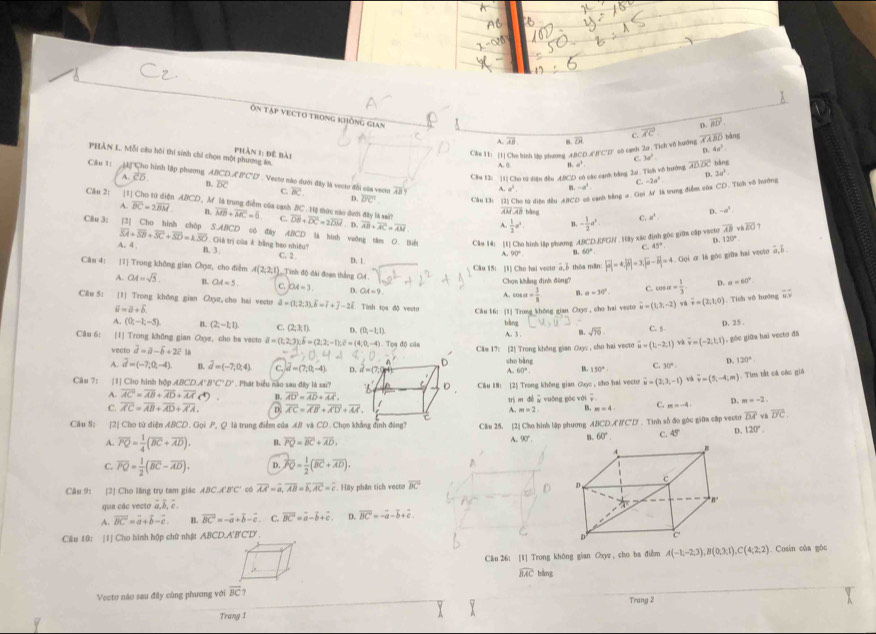 C2
ÔN TẬP VECTƠ TRONG KHÔNG GIAN
PHẦN 1: ĐỀ BÀI
PHẦN I. Mỗi câu hỏi thí sinh chỉ chọn một phương án.
Câu 1: [1] Cho hình lập phương ABCD.A'B'C'D'. Vectơ nào dưới đây là vectơ đối của vectơ AB ?
A. CD. B. DC C. BC. D. D'C'
Câu 2: [1] Cho tứ diện ABCD, M là trung điểm của cạnh BC. Hệ thức nào dưới đây là sai?
A. BC = 2BM. B. MB + MC = 0. C. DB + DC = 2DM. D. AB + AC = AM
Câu 3: [3] Cho hình chóp S.ABCD có đáy ABCD là hình vuông tâm O. Biết
SA + SB + SC + SD = k.SO. Giá trị của k bằng bao nhiêu?
A. 4. B. 3. C. 2. D. 1.
Câu 4: [1] Trong không gian Oxyz, cho điểm A(2;2;1). Tính độ dài đoạn thẳng OA.
A. OA = √5. B. OA = 5. C. OA = 3. D. OA = 9.
Câu 5: [1] Trong không gian Oxyz, cho hai vectơ a = (1;2;3), b = i + j - 2k. Tính tọa độ vectơ
u = a + b.
A. (0;-1;-5). B. (2;-1;1). C. (2;3;1). D. (0;-1;1).
Câu 6: [1] Trong không gian Oxyz, cho ba vectơ a = (1;2;3); b = (2;2;-1); c = (4;0;-4). Tọa độ của
vectơ d = a - b + 2c là
A. d = (-7;0;-4). B. d = (-7;0;4). C. d = (7;0;-4). D. d = (7;0;4).
Câu 7: [1] Cho hình hộp ABCD.A'B'C'D'. Phát biểu nào sau đây là sai?
A. AC' = AB + AD + AA'. B. AD' = AD + AA'.
C. AC' = AB + AD + A'A. D. AC' = A'B' + A'D' + AA'.
Câu 8: [2] Cho tứ diện ABCD. Gọi P, Q là trung điểm của AB và CD. Chọn khẳng định đúng?
A. PQ = 1/4 (BC + AD). B. PQ = BC + AD.
C. PQ = 1/2 (BC - AD). D. PQ = 1/2 (BC + AD).
Câu 9: [2] Cho lăng trụ tam giác ABC.A'B'C' có AA' = a, AB = b, AC = c. Hãy phân tích vectơ BC'
qua các vectơ a, b, c.
A. BC' = a + b - c. B. BC' = -a + b - c. C. BC' = a - b + c. D. BC' = -a - b + c.
Câu 10: [1] Cho hình hộp chữ nhật ABCD.A'B'C'D'.
Vectơ nào sau đây cùng phương với BC ?
Trang 1
A. AB B. DA C. A'C'. D. BD.
Câu 11: [1] Cho hình lập phương ABCD.A'B'C'D' có cạnh 2a. Tích vô hướng bằng
A. 0. B. a². C. 3a². D. 4a².
Câu 12: [1] Cho tứ diện đều ABCD có các cạnh bằng 2a. Tích vô hướng AD.DC bằng
A. a². B. -a² C. -2a² D. 2a².
Câu 13: [2] Cho tứ diện đều ABCD có cạnh bằng a. Gọi M là trung điểm của CD. Tích vô hướng
AM.AB bằng
A. 1/2 a². B. -1/2 a². C. a² D. -a²
Câu 14: [1] Cho hình lập phương ABCD.EFGH. Hãy xác định góc giữa cặp vectơ AB và EG ?
A. 90° B. 60°. C. 45°. D. 120°.
Câu 15: [1] Cho hai vectơ a, b thỏa mãn: |a| = 4; |b| = 3; |a - b| = 4. Gọi α là góc giữa hai vectơ a, b.
Chọn khẳng định đúng?
A. cos α = 3/8 B. α = 30°. C. cos α = 1/3. D. α = 60°.
Câu 16: [1] Trong không gian Oxyz, cho hai vectơ u = (1;3;-2) và v = (2;1;0). Tích vô hướng u.v
bằng
A. 3. B. √70. C. 5. D. 25.
Câu 17: [2] Trong không gian Oxyz, cho hai vectơ u = (1;-2;1) và v = (-2;1;1), góc giữa hai vectơ đã
cho bằng
A. 60°. B. 150°. C. 30°. D. 120°.
Câu 18: [2] Trong không gian Oxyz, cho hai vectơ u = (2;3;-1) và v = (5;-4;m). Tìm tất cả các giá
trị m để u vuông góc với v.
A. m = 2. B. m = 4. C. m = -4. D. m = -2.
Câu 25. [2] Cho hình lập phương ABCD.A'B'C'D'. Tính số đo góc giữa cặp vectơ DA' và D'C'.
A. 90°. B. 60°. C. 45° D. 120°.
Câu 26: [1] Trong không gian Oxyz, cho ba điểm A(-1;-2;3), B(0;3;1), C(4;2;2). Cosin của góc
BAC bằng
Trang 2